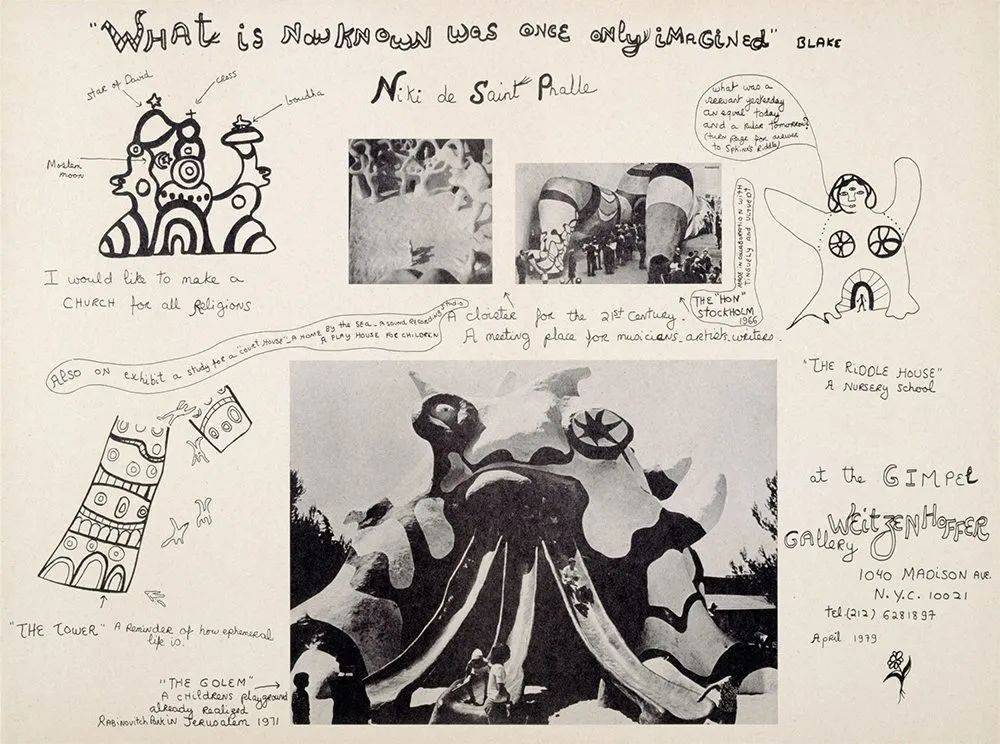 "WHAt is NOW KNOWN WAS ONCE ONly iMAGiNED" BLAKE
Niki de Saint Phalle
star of David
cross
boudha
Moslem
moon
I would like to make a
CHURCH for all Religions
what was a
servant yesterday
an equal today
and a Ruler tomorrow?
(turn page for answer
to Sphinx's Riddle)
MADE IN COLLABORATION WITH
TINGUELY AND ULTVEDT
THE "HON"
STOCKHOLM
1966
A cloister for the 21st Century.
A meeting place for musicians. artists. writers.
Also ON exhibit a study for a "court House" _ A HOME BY the SEA _ A SOUND RECORDING studio
A PLAY HOUSE FOR CHILDREN
"THE RiDDLE HOUSE"
A NURSERY School
at the GIMPEL
WEITZENHOFFER
GALLERY
1040 MADISON AVE.
N.Y.C. 10021
tel. (212) 6281897
April 1979
"THE TOWER" A Reminder of how ephemeral
life is.
"THE GOLEM"
A CHILDRENS playground
already Realized
RABINOVITCH PARK in JERUSALEM 1971